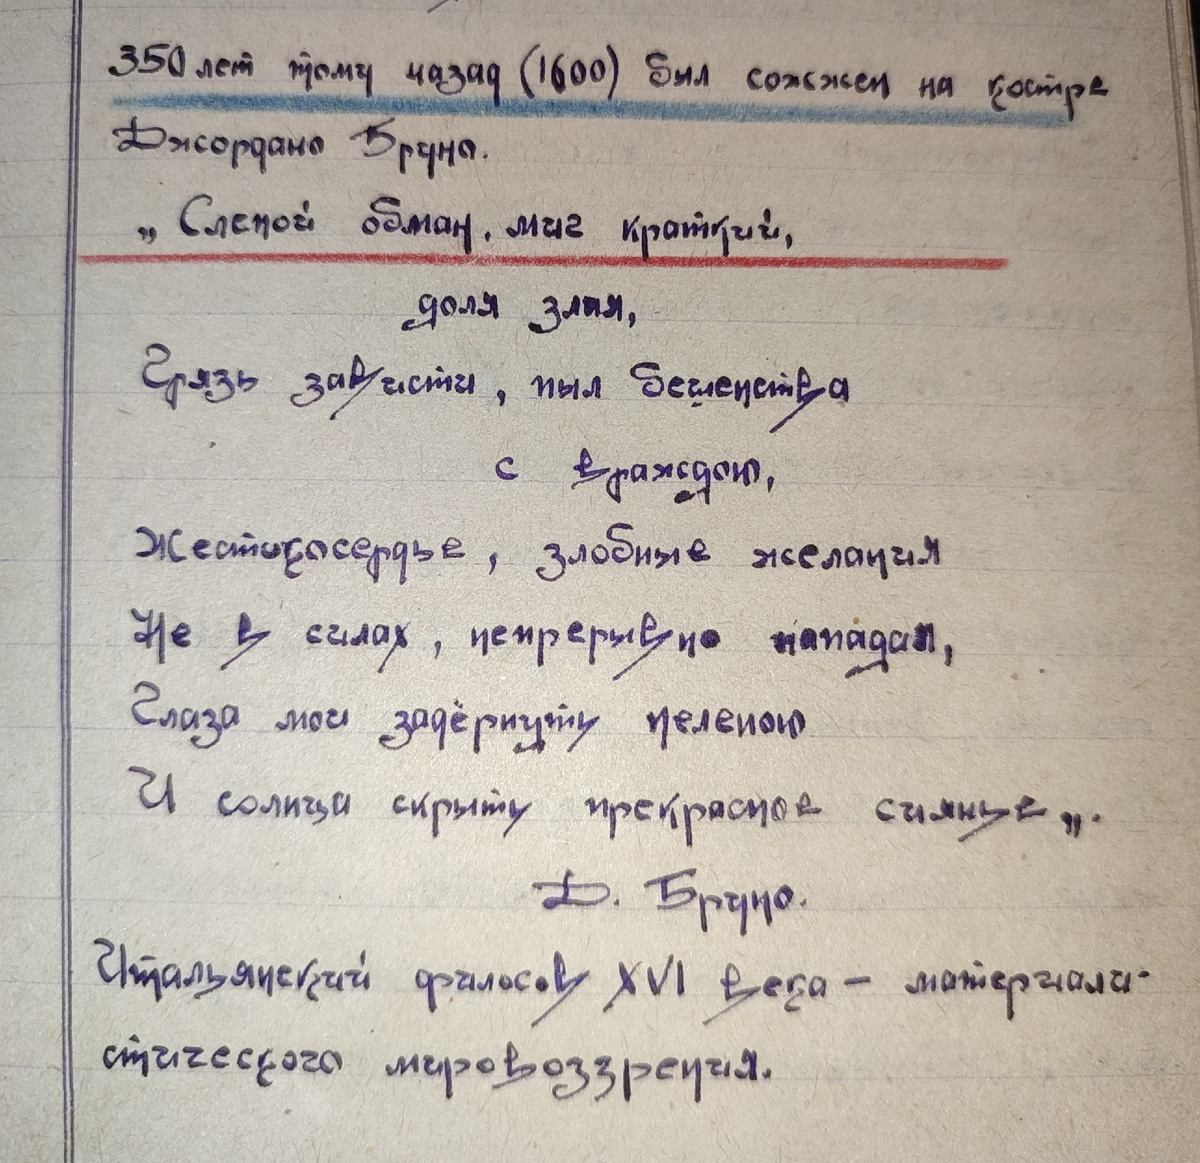 350 лет тому назад (1600) был сожжен на костре
Джордано Бруно.
„Слепой обман, миг краткий,
доля злая,
Грязь зависти, пыл бешенства
с враждою,
Жестокосердье, злобные желания
Не в силах, непрерывно нападая,
Глаза мои задёрнуть пеленою
И солнца скрыть прекрасное сиянье„.
Д. Бруно.
Итальянский философ XVI века – материали-
стического мировоззрения.